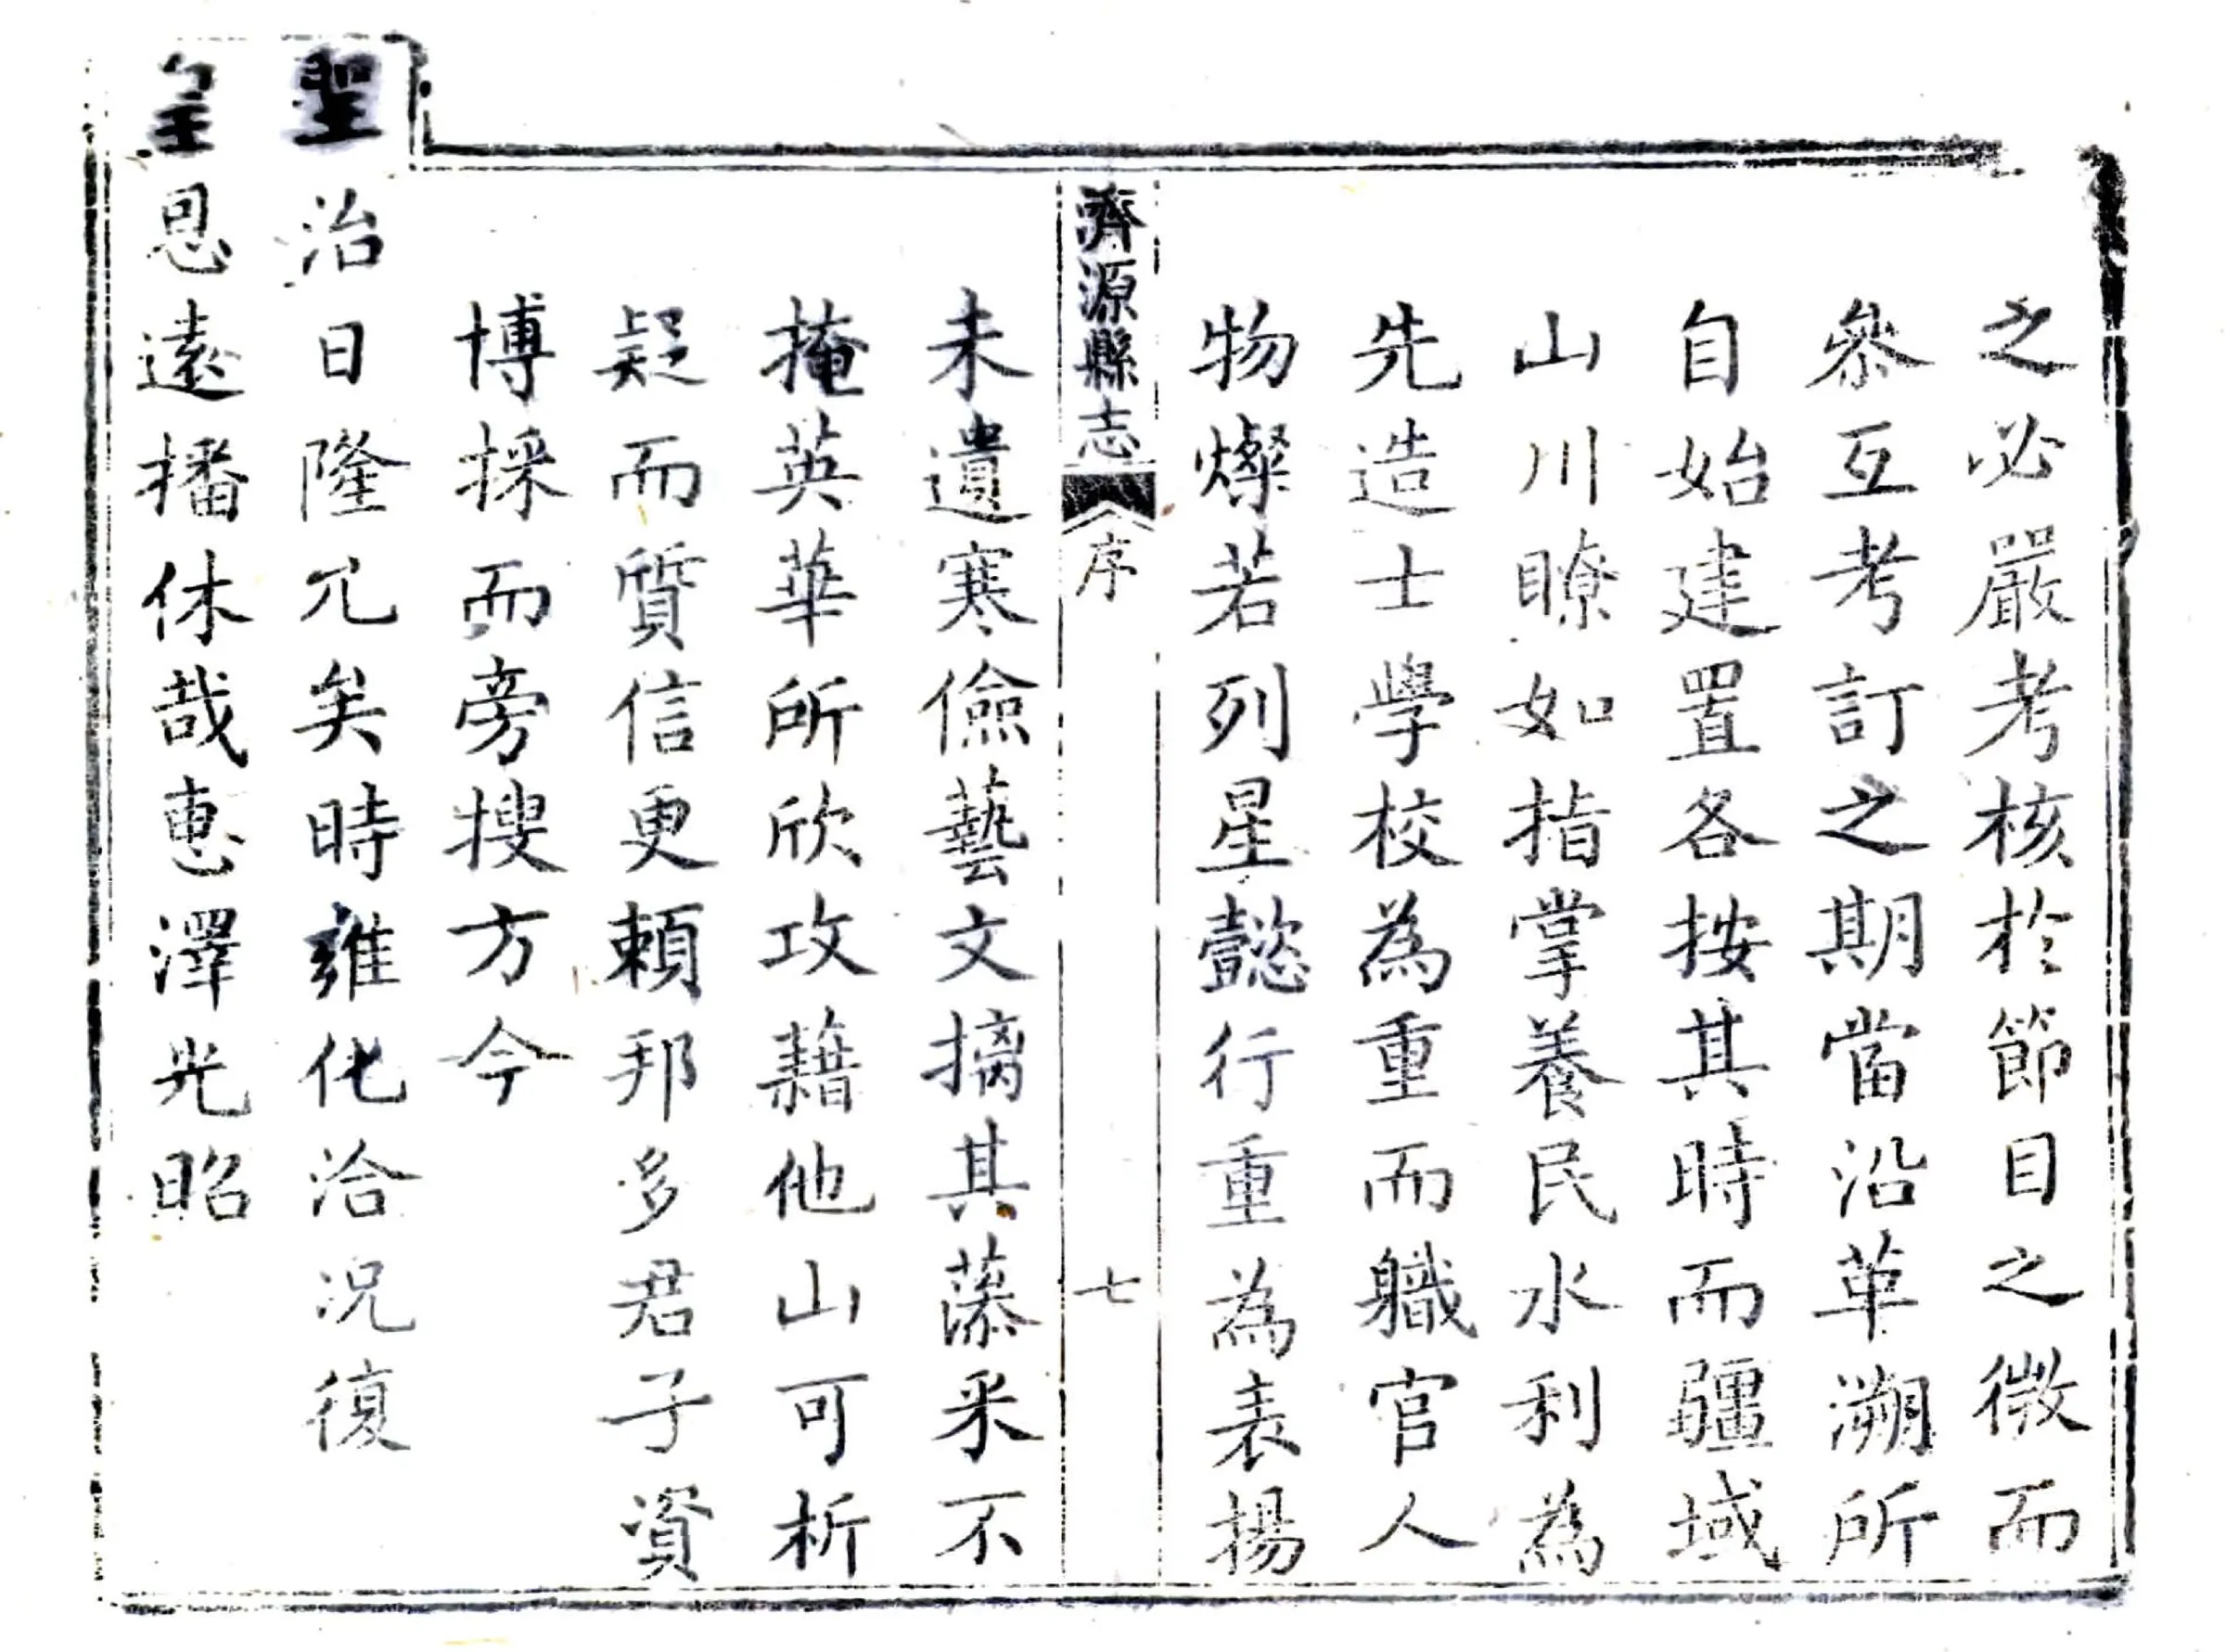 之必嚴考核於節目之微而
叅互考訂之期當沿革溯所
自始建置各按其時而疆域
山川瞭如指掌養民水利為
先造士學校為重而職官人
物燦若列星懿行重為表揚
濟源縣志
序
七
未遺寒儉藝文摛其藻采不
掩英華所欣攻藉他山可析
疑而質信更賴邦多君子資
博採而旁搜方今
聖治日隆兀矣時雍化洽况復
皇恩遠播休哉惠澤光昭